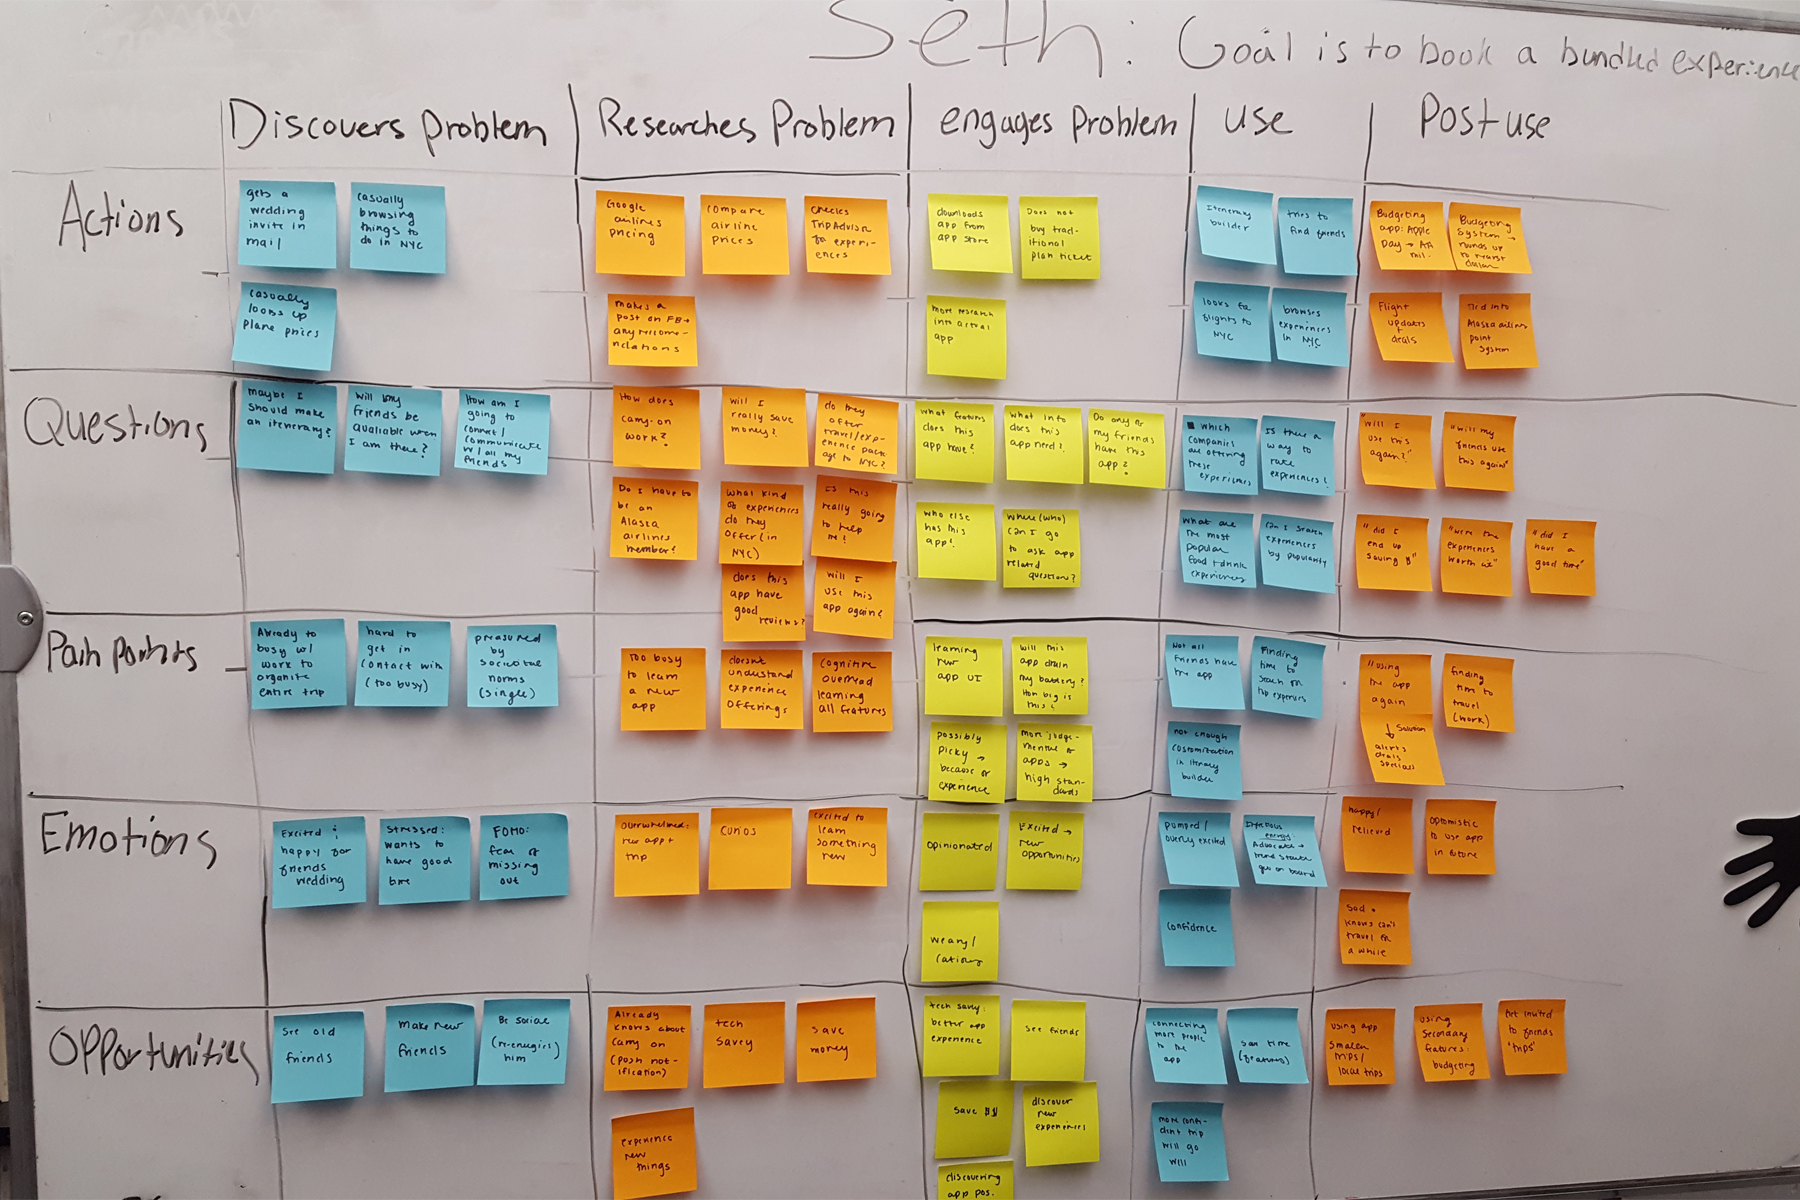 Seth: Goal is to book a bundled experience
Discovers problem
Researches Problem
engages Problem
use
Post use
Actions
gets a
wedding
invite in
mail
casually
browsing
things to
do in NYC
casually
looks up
plane prices
Google
airlines
pricing
compare
airline
prices
checks
TripAdvisor
for experi-
ences
makes a
post on FB →
any recome-
ndations
downloads
app from
app store
Does not
buy trad-
itional
plan ticket
more research
into actual
app
Itenerary
builder
tries to
find friends
looks for
flights to
NYC
browses
experiences
in NYC
Budgeting
app: Apple
Day →
Budgeting
System →
rounds up
to nearst
dollar
Flight
updates
+
deals
Tied into
Alaska airlines
point
System
Questions
maybe I
should make
an itenerary?
will my
friends be
avaliable when
I am there?
How am I
going to
connect/
communicate
w/ all my
friends
How does
carry-on
work?
will I
really save
money?
do they
offer
travel/exp-
erience pack
age to NYC?
Do I have to
be an
Alaska
airlines
member?
what kind
of experiences
do they
offer (in
NYC)
Is this
really going
to help
me?
does this
app have
good
reviews?
will I
use this
app again?
what features
does this
app have?
what info
does this
app need?
Do any of
my friends
have this
app?
who else
has this
app?
where (who)
can I go
to ask app
related
questions?
which
companies
are offering
these
experiences
Is there a
way to
rate
experiences?
what are
the most
popular
food + drink
experiences
can I search
experiences
by popularity
"will I
use this
again?"
"will my
friends use
this again"
"did I
end up
saving $"
"were the
experiences
worth it"
"did I
have a
good time"
Pain points
Already to
busy w/
work to
organize
entire trip
hard to
get in
contact with
(too busy)
presured
by
societal
norms
(single)
Too busy
to learn
a new
app
doesnt
understand
experience
offerings
cognitive
overload
learning
all features
learning
new
app UI
will this
app drain
my battery?
How big is
this?
possibly
picky →
because of
experience
more judge-
mental of
apps →
high stan-
dards
Not all
friends have
the app
Finding
time to
search for
top experiences
not enough
costomization
in itinerary
builder
"using
the app
again
↓ Solution
alerts
deals
specials
finding
time to
travel
(work)
Emotions
Excited ;
happy for
friends
wedding
Stressed:
wants to
have good
time
FOMO:
fear of
missing
out
Overwhelmed:
new app +
trip
curios
excited to
learn
something
new
opinionated
Excited →
new
opportunities
weary/
pumped/
overly excited
Infectious
energy:
Advocate →
on board
confidence
happy/
relieved
optomistic
to use app
in future
Sad.
knows can't
travel for
a while
Opportunities
See old
friends
make new
friends
Be social
(re-energies)
him
Already
knows about
carry on
(push not-
ification)
tech
savey
save
money
experience
new
things
tech savy:
better app
experience
see friends
save $$
discover
new
experiences
discovering
app pos.
connecting
more people
to the
app
save time
(features)
more confi-
dent trip
will go
well
using app
smaller
trips/
local trips
using
secondary
features:
budgeting
Get invited
to friends
"trips"